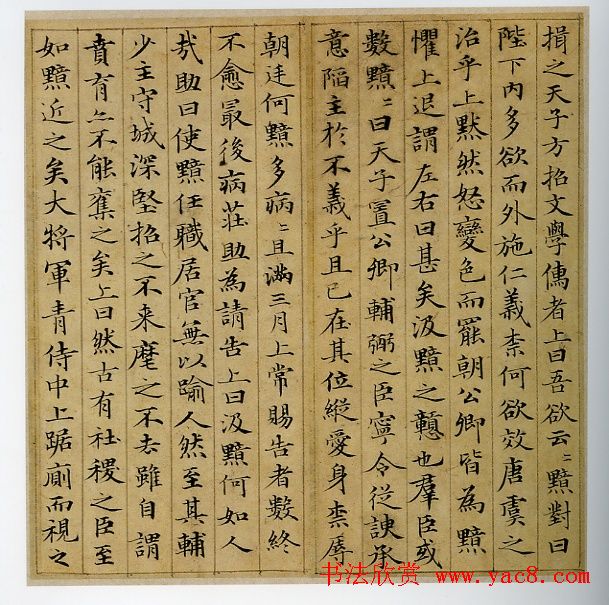 揖之天子方招文學儒者上曰吾欲云〻黯對曰
陛下內多欲而外施仁義柰何欲效唐虞之
治乎上黙然怒變色而罷朝公卿皆為黯
懼上退謂左右曰甚矣汲黯之戇也羣臣或
數黯〻曰天子置公卿輔弼之臣寧令從諛承
意陷主於不義乎且已在其位縱愛身柰辱
朝廷何黯多病〻且滿三月上常賜告者數終
不愈最後病莊助為請告上曰汲黯何如人
哉助曰使黯任職居官無以踰人然至其輔
少主守城深堅招之不来麾之不去雖自謂
賁育亦不能奪之矣上曰然古有社稷之臣至
如黯近之矣大將軍青侍中上踞廁而視之
书法欣赏 www.yac8.com